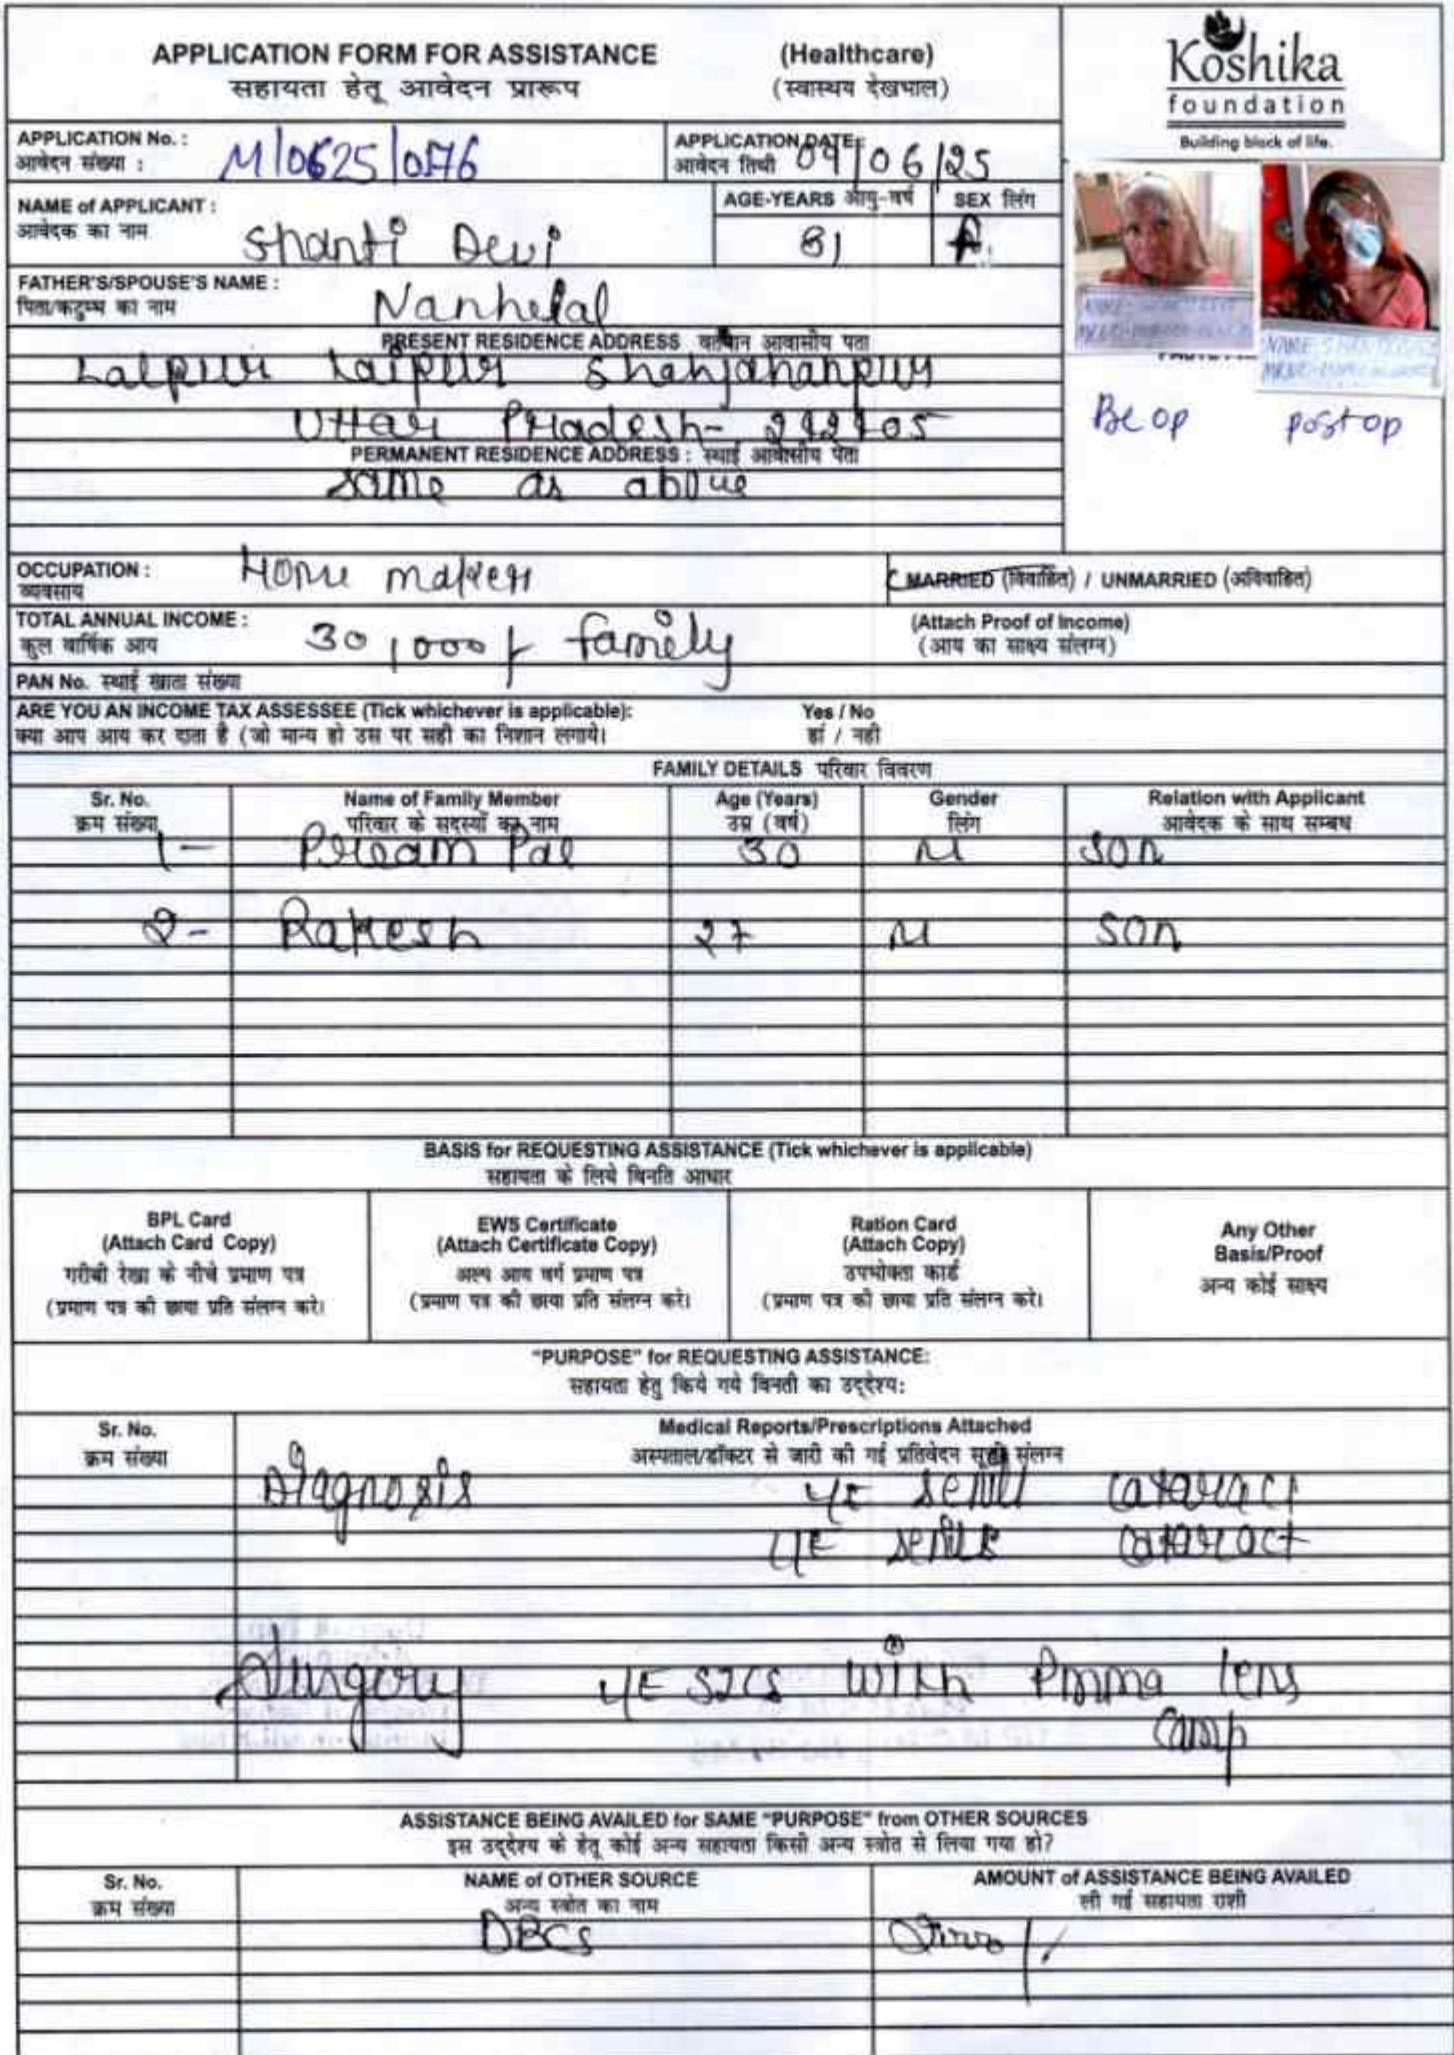 APPLICATION FORM FOR ASSISTANCE (Healthcare)
सहायता हेतू आवेदन प्रारूप (स्वास्थय देखभाल)
Koshika
foundation
Building block of life.
APPLICATION No. : M/0625/0576
आवेदन संख्या :
APPLICATION DATE: 09/06/25
आवेदन तिथी
NAME of APPLICANT : Shanti Devi
आवेदक का नाम
AGE-YEARS आयु-वर्ष SEX लिंग
FATHER'S/SPOUSE'S NAME : Nanhelal
पिता/कटुम्ब का नाम
PRESENT RESIDENCE ADDRESS वर्तमान आवासीय पता
Lalpur Shahjahanpur
Uttar Pradesh-
PERMANENT RESIDENCE ADDRESS : स्थाई आवासीय पता
same as above
Pre op post op
OCCUPATION : Home maker
व्यवसाय
MARRIED (विवाहित) / UNMARRIED (अविवाहित)
TOTAL ANNUAL INCOME : 30,000/- family
कुल वार्षिक आय
(Attach Proof of Income)
(आय का साक्ष्य संलग्न)
PAN No. स्थाई खाता संख्या
ARE YOU AN INCOME TAX ASSESSEE (Tick whichever is applicable): Yes / No
क्या आप आय कर दाता है (जो मान्य हो उस पर सही का निशान लगाये। हां / नही
FAMILY DETAILS परिवार विवरण
Sr. No. Name of Family Member Age (Years) Gender Relation with Applicant
क्रम संख्या परिवार के सदस्यों का नाम उम्र (वर्ष) लिंग आवेदक के साथ सम्बध
1- Pal 30 M son
2- Rakesh 27 M son
BASIS for REQUESTING ASSISTANCE (Tick whichever is applicable)
सहायता के लिये विनति आधार
BPL Card
(Attach Card Copy)
गरीबी रेखा के नीचे प्रमाण पत्र
(प्रमाण पत्र की छाया प्रति संलग्न करे।
EWS Certificate
(Attach Certificate Copy)
अल्प आय वर्ग प्रमाण पत्र
(प्रमाण पत्र की छाया प्रति संलग्न करे।
Ration Card
(Attach Copy)
उपभोक्ता कार्ड
(प्रमाण पत्र की छाया प्रति संलग्न करे।
Any Other
Basis/Proof
अन्य कोई साक्ष्य
"PURPOSE" for REQUESTING ASSISTANCE:
सहायता हेतु किये गये विनती का उद्देश्य:
Sr. No. Medical Reports/Prescriptions Attached
क्रम संख्या अस्पताल/डॉक्टर से जारी की गई प्रतिवेदन सूची संलग्न
Diagnosis senile cataract
senile cataract
Surgery SICS with Pmma lens
camp
ASSISTANCE BEING AVAILED for SAME "PURPOSE" from OTHER SOURCES
इस उद्देश्य के हेतू कोई अन्य सहायता किसी अन्य स्त्रोत से लिया गया हो?
Sr. No. NAME of OTHER SOURCE AMOUNT of ASSISTANCE BEING AVAILED
क्रम संख्या अन्य स्त्रोत का नाम ली गई सहायता राशी
DBCS